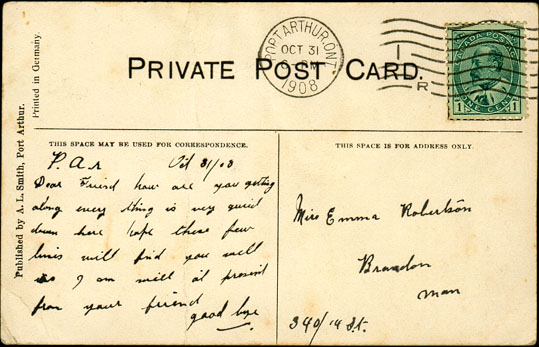 PORT ARTHUR, ONT.
OCT 31
PM
1908
R
CANADA POSTAGE
ONE CENT
1 1
PRIVATE POST CARD.
Printed in Germany.
Published by A. L. Smith, Port Arthur.
THIS SPACE MAY BE USED FOR CORRESPONDENCE.
P. A. Oct 31/08
Dear Friend how are you getting
along every thing is very quied
down here hope these few
lines will find you well
as I am well at present
from your friend
good bye
THIS SPACE IS FOR ADDRESS ONLY.
Miss Emma Robertson
Brandon
Man
340/14 St.